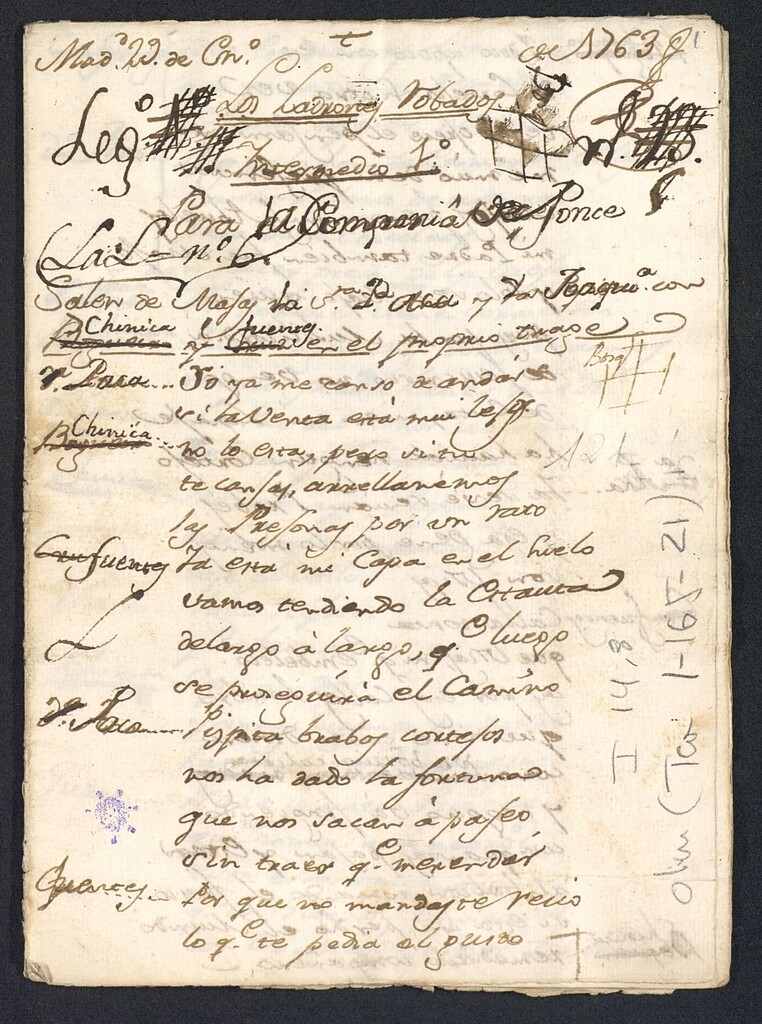 Mad.d 29. de En.o de 1763
Leg.o
Los Ladrones Robados
Intermedio 1.o
Para la Compañia de Ponce
La L = n.o 6.
Salen de Majas la S.ra y la Joaqui.a con
Chinica y fuentes en el proprio trage
S.a Paca... Yo ya me canso de andar
si la Venta está mui lejos
Chinica... no lo está, pero si tu
te cansas, arrellanemos
las Presonas por un rato
fuentes Ya está mi Capa en el suelo
vamos tendiendo la Chauta
de largo à largo, q.e luego
se proseguirá el Camino
S.a Paca... Pepita brabos cortejos
nos ha dado la fortuna
que nos sacan à paseo
sin traer q.e merendar
fuentes... Por que no mandaste recio
lo q.e te pedia el gusto
Borq
121
I 14, 8
olim (Tea 1-168-21)